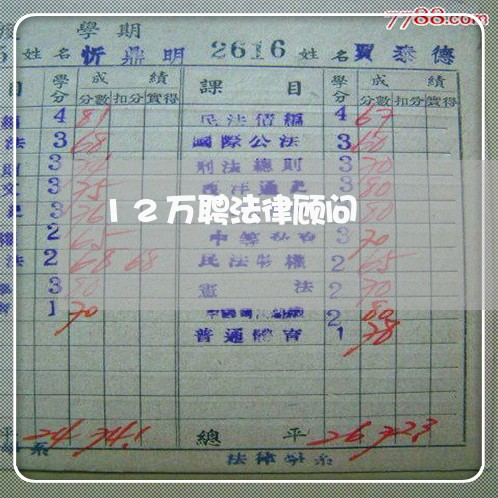 7788.com
學期
5 姓名 忻鼎明 2616 姓名 賈泰德
目 學分 成績 課目 學分 成績
分數 扣分 實得 分數 扣分 實得
4 81 民法債編 4 67
法 3 68 國際公法 3 60
3 刑法總則 3 70
文 3 75 西洋通史 3 80
3 76 80
12万聘法律顾问
2 65 3 70
法 2 68 68 民法物權 2 65
3 80 憲法 2 70
1 70 2 80
普通體育 1 78
平 24 74.1 總平 26 72.3
系 法律學系